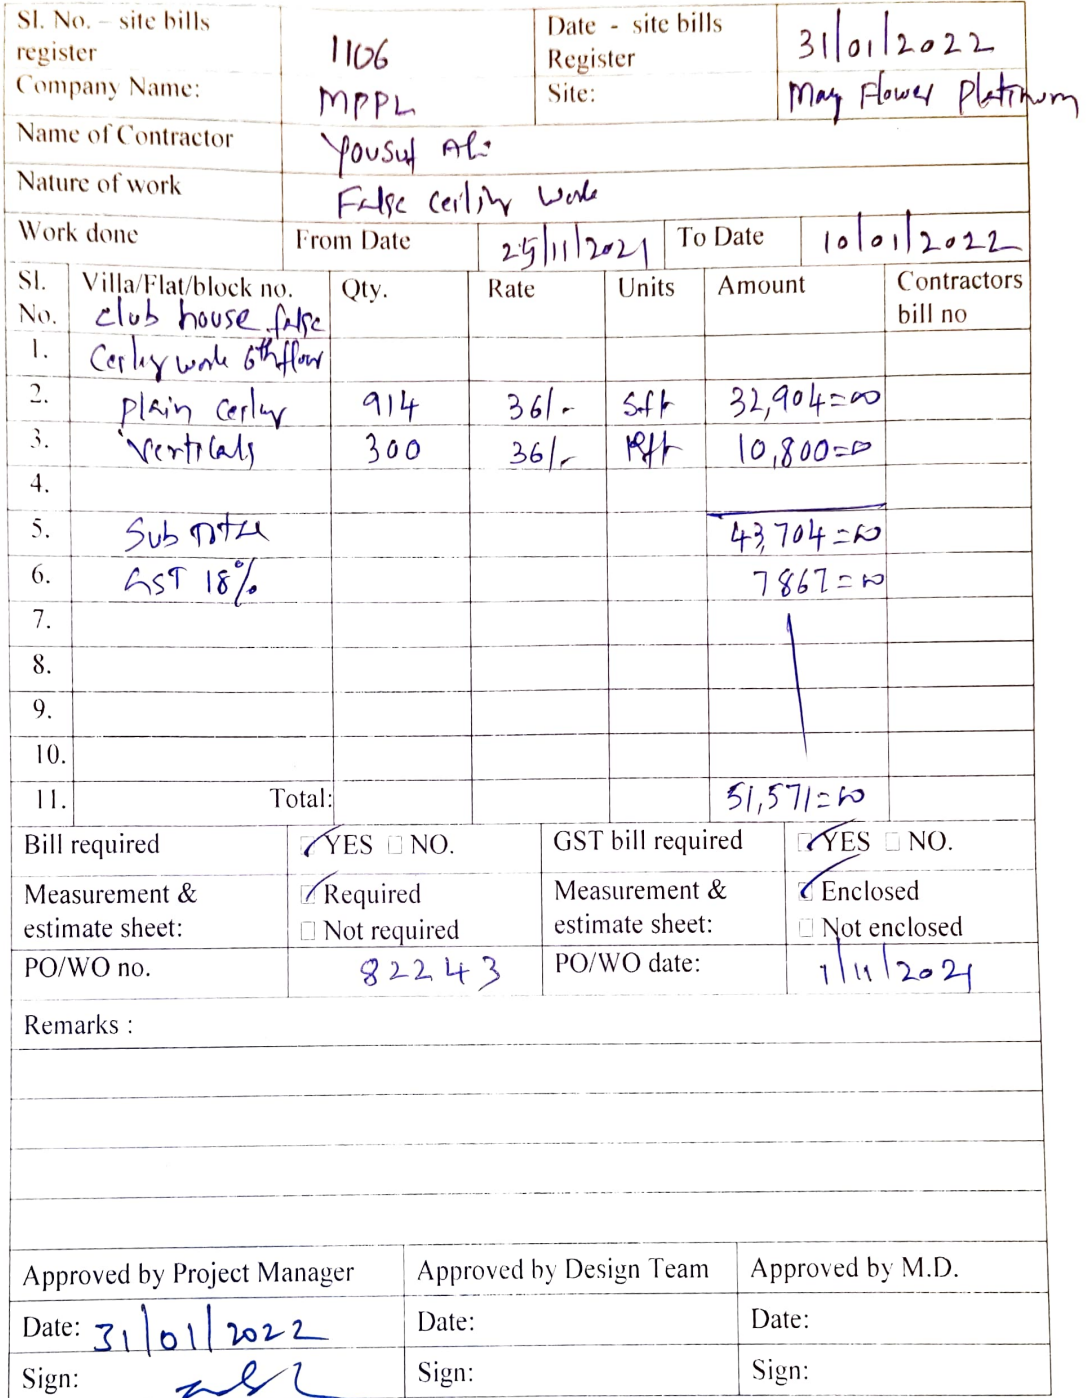 Sl. No. – site bills register 1106 Date - site bills Register 31/01/2022
Company Name: MPPL Site: May Flower Platinum
Name of Contractor Yousuf Ali
Nature of work False ceiling work
Work done From Date 25/11/2021 To Date 10/01/2022
Sl. No. Villa/Flat/block no. Qty. Rate Units Amount Contractors bill no
club house false
1. Ceiling work 6th floor
2. plain ceiling 914 36/- Sft 32,904=00
3. Verticals 300 36/- Rft 10,800=00
4.
5. Sub Total 43,704=00
6. GST 18% 7867=00
7.
8.
9.
10.
11. Total: 51,571=00
Bill required YES NO. GST bill required YES NO.
Measurement & estimate sheet: Required Not required Measurement & estimate sheet: Enclosed Not enclosed
PO/WO no. 82243 PO/WO date: 1/11/2021
Remarks :
Approved by Project Manager Approved by Design Team Approved by M.D.
Date: 31/01/2022 Date: Date:
Sign: Sign: Sign: